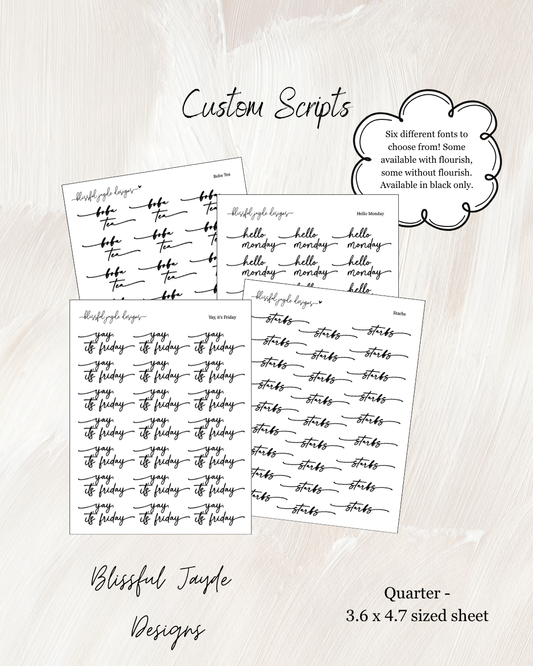 Custom Scripts
Six different fonts to
choose from! Some
available with flourish,
some without flourish.
Available in black only.
blissful jayde designs
Boba Tea
boba boba boba
tea tea tea
boba boba boba
tea tea
boba boba
tea tea
boba boba
tea tea
boba boba
blissful jayde designs
Hello Monday
hello hello hello
monday monday monday
hello hello hello
monday monday monday
hello
blissful jayde designs
Yay, it's Friday
yay, yay, yay,
it's friday it's friday it's friday
yay, yay, yay,
it's friday it's friday it's friday
yay, yay, yay,
it's friday it's friday it's friday
yay, yay, yay,
it's friday it's friday it's friday
yay, yay, yay,
it's friday it's friday it's friday
yay, yay, yay,
it's friday it's friday it's friday
yay, yay, yay,
it's friday it's friday it's friday
blissful jayde designs
Starbs
starbs starbs starbs
starbs starbs starbs
starbs starbs starbs
starbs starbs starbs
starbs starbs starbs
starbs starbs starbs
starbs starbs starbs
starbs starbs starbs
starbs starbs starbs
Blissful Jayde
Designs
Quarter -
3.6 x 4.7 sized sheet